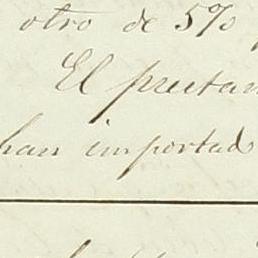 otro de 5%
El prestan
han importado